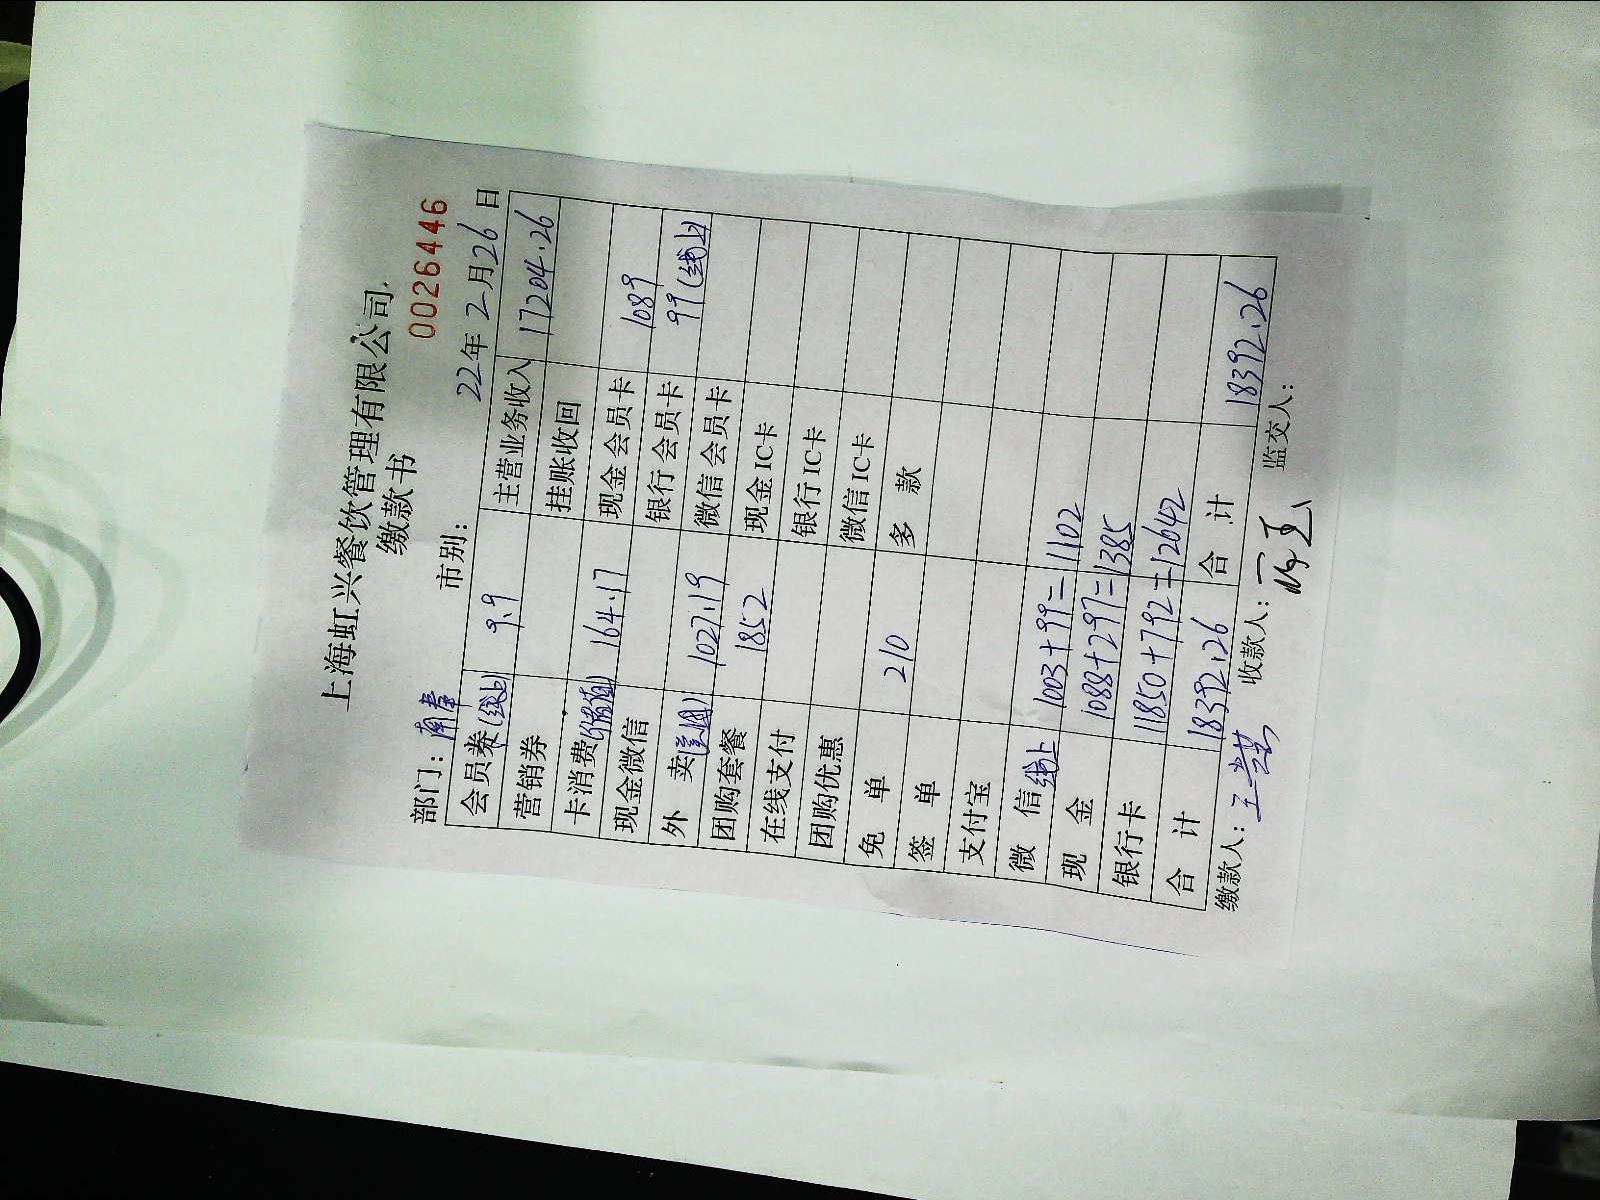 上海虹兴餐饮管理有限公司
缴款书
0026446
部门： 市别： 22年2月26日
会员券(线上) 9.9 主营业务收入 17204.26
营销券 挂账收回
卡消费(储值) 164.17 现金会员卡 1089
现金微信 银行会员卡 99(线上)
外 卖 1027.19 微信会员卡
团购套餐 1852 现金IC卡
在线支付 银行IC卡
团购优惠 微信IC卡
免 单 210 多 款
签 单
支付宝
微 信 线上 1003+99=1102
现 金 1088+297=1385
银行卡 11850+792=12642
合 计 18392.26 合 计 18392.26
缴款人： 收款人： 监交人：